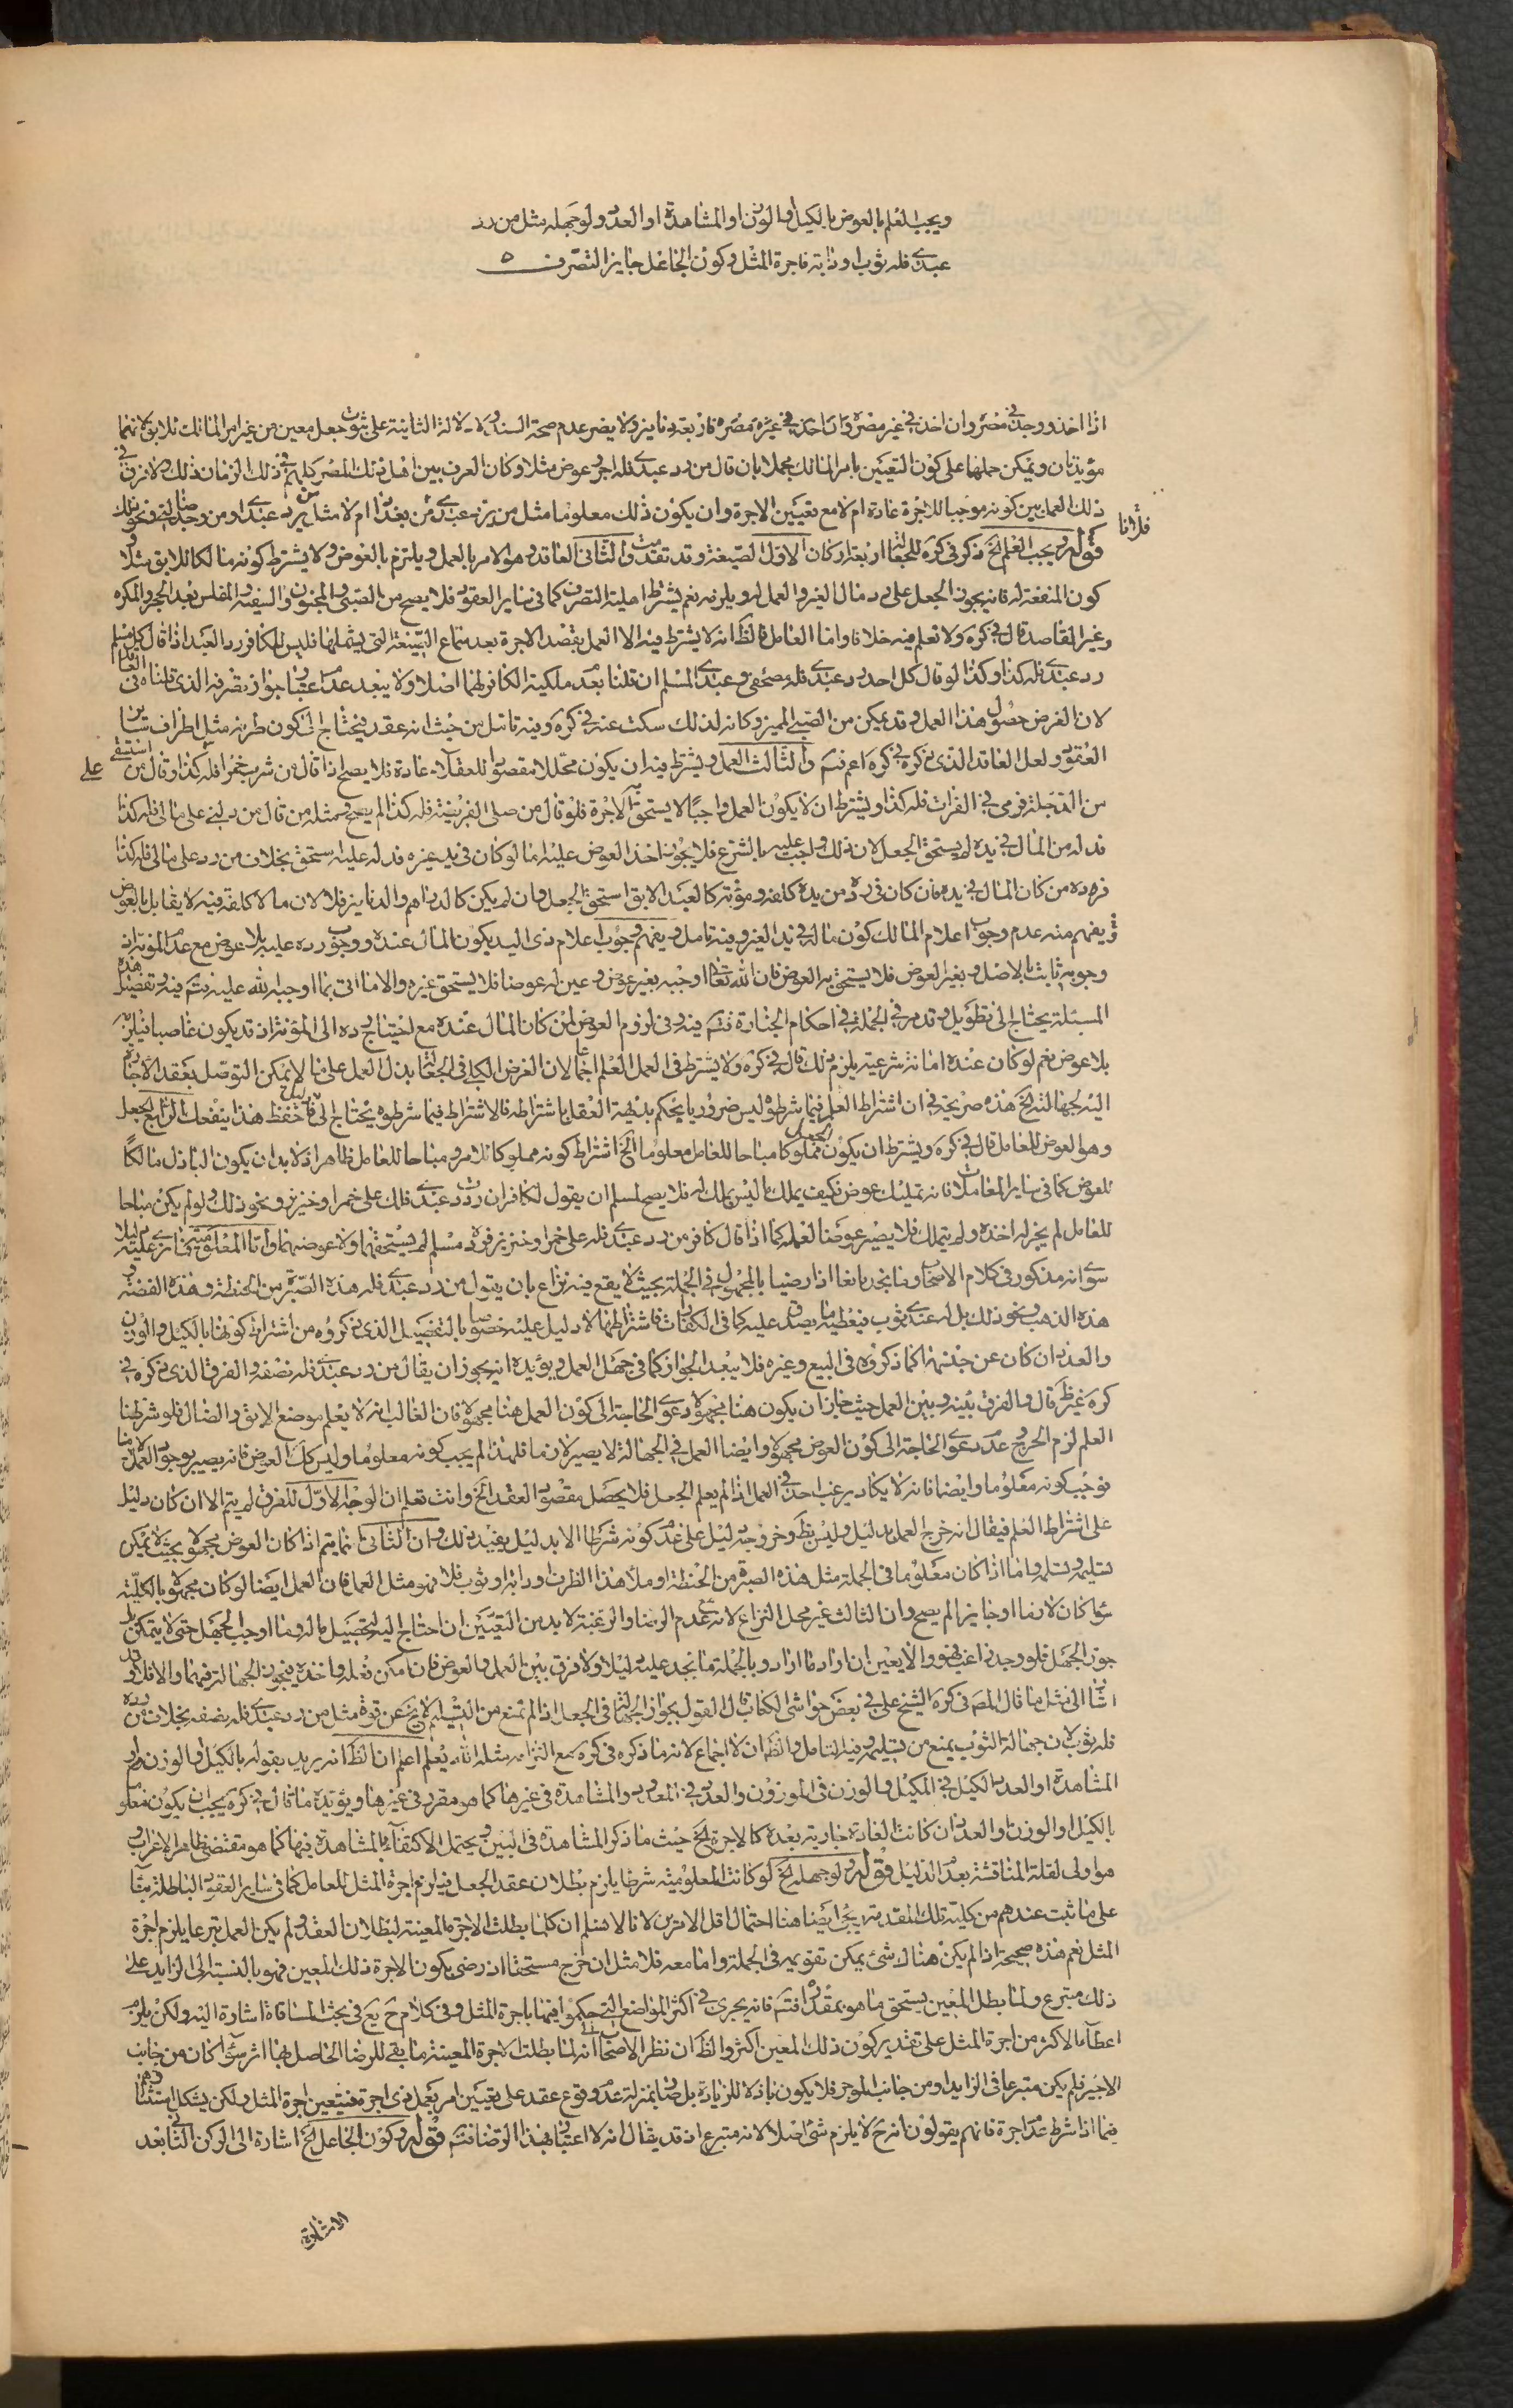 ويجب العلم بالعوض بالكيل او الوزن او المشاهدة او العدد ولو جهله مثل من رد
عبدى فله ثوب او دابة فاجرة المثل وكون الجاعل جايز التصرف
اذا اخذ ووجد فى مصره وان اخذ فى غير مصره وان اخذ فى غيره مصره فاربعة دنانير ولا يضر عدم صحة السند ولا دلالة الثانية على ثبوت جعل معين من غير امر المالك للابق لانهما
مؤيدتان ويمكن حملها على كون التعيين بامر المالك مجملا بان قال من رد عبدى فله اجر وعوض مثلا وكان العرف بين اهل ذلك المصر كلهم فى ذلك الزمان ذلك ولا فرق فى
ذلك العمل بين كونه موجبا للاجرة عادة ام لا مع تعيين الاجرة وان يكون ذلك معلوما مثل من يرد عبدى من بغداد ام لا مثل من يرد عبدى او من وجد ضالتى ونحو ذلك
قوله ويجب العلم الخ ذكر فى كره للجعالة اربعة اركان الاول الصيغة وقد تقدمت والثانى العاقد وهو الامر بالعمل ويلتزم بالعوض ولا يشترط كونه مالكا للابق مثلا
كون المنفعة له فانه يجوز الجعل على رد مال الغير والعمل له ويلزمه نعم يشترط اهلية التصرف كما فى ساير العقود فلا يصح من الصبى والمجنون والسفيه والمفلس بعد الحجر والمكره
وغير القاصد قال فى كره ولا نعلم فيه خلافا واما العامل فالظ انه لا يشترط فيه الا العمل بقصد الاجرة بعد سماع الصيغة التى يشملها فليس للكافر رد العبد اذا قال كل مسلم
رد عبدى فله كذا وكذا لو قال كل احد رد عبدى فله مصحفى وعبدى المسلم ان قلنا بعدم ملكية الكافر لهما اصلا ولا يبعد عدم اعتبار جواز تصرفه الذى قلناه فى العاقد
لان الغرض حصول هذا العمل وقد يمكن من الصبى المميز وكانه لذلك سكت عنه فى كره وفيه تامل من حيث انه عقد فيحتاج الى كون طرفه مثل اطراف ساير
العقود ولعل العاقد الذى ذكره فى كره اعم فتم والثالث العمل ويشترط فيه ان يكون محللا مقصودا للعقلاء عادة فلا يصح اذا قال من شرب خمرا فله كذا او قال من استقى
من الدجلة ورمى فى الفرات فله كذا ويشترط ان لا يكون العمل واجبا لا يستحق به الاجرة فلو قال من صلى الفريضة فله كذا لم يصح ومثله من قال من دلنى على مالى فله كذا
فدله من المال فى يده لم يستحق الجعل لان ذلك واجب عليه بالشرع فلا يجوز اخذ العوض عليه اما لو كان فى يد غيره فدله عليه استحق بخلاف من رد على مالى فله كذا
فرده من كان المال فى يده فان كان فى رده من يده كلفة ومؤنة كالعبد الابق استحق الجعل وان لم يكن كالدراهم والدنانير فلا لان ما لا كلفة فيه لا يقابل بالعوض
ويفهم منه عدم وجوب اعلام المالك كون ماله فى يد الغير وفيه تامل ويفهم وجوب اعلام ذى اليد بكون المال عنده ووجوب رده عليه بلا عوض مع عدم المؤنة اذ
وجوبه ثابت بالاصل وبغير العوض فلا يستحق به العوض فان الله تعالى اوجبه بغير عوض وعين له عوضا فلا يستحق غيره والا ما اتى بما اوجبه الله عليه فتم فيه وتفصيل هذه
المسئلة يحتاج الى تطويل وقد مر فى الجملة فى احكام التجارة فتم فيه وفى لزوم العوض لمن كان المال عنده مع احتياج رده الى المؤنة اذ قد يكون غاصبا فيلزمه
بلا عوض نعم لو كان عنده امانة شرعية يلزم ذلك قال فى كره ولا يشترط فى العمل العلم اجماعا لان الغرض الكلى فى الجعالة بذل العمل على ما لا يمكن التوصل بعقد الاجارة
اليه لجهالته الخ هذه صريحة فى ان اشتراط العلم فيما شرطوه ليس ضروريا يحكم بديهة العقل باشتراطه فالاشتراط فيما شرطوه يحتاج الى دليل فاحفظ هذا ينفعك الرابع الجعل
وهو العوض للعامل قال فى كره ويشترط ان يكون الجعل مملوكا مباحا للعامل معلوما الخ اشتراط كونه مملوكا للامر ومباحا للعامل ظاهر اذ لا بد ان يكون الباذل مالكا
للعوض كما فى ساير المعاملات فانه تمليك عوض فكيف يملك ما ليس بملك له فلا يصح لمسلم ان يقول لكافر ان رددت عبدى فلك على خمر او خنزير ونحو ذلك ولو لم يكن مباحا
للعامل لم يجز له اخذه ولم يتملك فلا يصير عوضا لعمله كما اذا قال كافر من رد عبدى فله على خمر او خنزير فرده مسلم لم يستحقهما ولا عوضهما واما المعلومية فما نرى عليه دليلا
سوى انه مذكور فى كلام الاصحاب وما نجد مانعا اذا رضيا بالمجهول فى الجملة بحيث لا يقع فيه نزاع بان يقول من رد عبدى فله هذه الصبرة من الحنطة وهذه الفضة
هذه الذهب ونحو ذلك بل له عندى ثوب فيعطيه ما يصدق عليه كما فى الكفارات فاشتراطها لا دليل عليه خصوصا بالتفصيل الذى ذكروه من اشتراط كونها بالكيل والوزن
والعد ان كان عن جنسها كما ذكروه فى البيع وغيره فلا يبعد الجواز كما فى جهل العمل ويؤيده انه يجوز ان يقال من رد عبدى فله نصفه والفرق الذى ذكره فى
كره غير ظ قال والفرق بينه وبين العمل حيث جاز ان يكون هنا مجهولا دعوى الحاجة الى كون العمل هنا مجهولا فان الغالب انه لا يعلم موضع الابق والضال فلو شرطنا
العلم لزم الحرج وعدم دعوى الحاجة الى كون العوض مجهولا وايضا العمل فى الجهالة لا يصير لازما فلهذا لم يجب كونه معلوما وليس كك العوض فانه يصير بوجود العمل لازما
فوجب كونه معلوما وايضا فانه لا يكاد يرغب احد فى العمل اذا لم يعلم الجعل فلا يحصل مقصود العقد الخ وانت تعلم ان الوجه الاول للفرق لم يتم الا ان كان دليل
على اشتراط العلم فيقال انه خرج العمل بدليل وليس بظ وخروجه دليل على عدم كونه شرطا الا بدليل يفيد ذلك وان الثانى انما يتم اذا كان العوض مجهولا بحيث لا يمكن
تسليمه وتسلمه واما اذا كان معلوما فى الجملة مثل هذه الصبرة من الحنطة او ملأ هذا الظرف او دابة او ثوب فلا فهو مثل العمل فان العمل ايضا لو كان مجهولا بالكلية
سواء كان لازما او جايزا لم يصح وان الثالث غير محل النزاع لانه مع عدم الرضا والرغبة لا بد من التعيين ان احتاج اليه لتحصيل ماله وما اوجب الجهل حتى لا يتمكن بل
جوز الجهل فلو وجد راغب فهو والا يعين ان اراد ما اراد وبالجملة ما نجد عليه دليلا ولا فرق بين العمل والعوض فان امكن فعله واخذه فيجوز الجهالة فيهما والا فلا وقد
اشار الى مثل ما قال المص فى كره الشيخ على فى بعض حواشى الكتاب قال القول بجواز الجهالة فى الجعل اذا لم تمنع من التسليم لا يخ عن قوة مثل من رد عبدى فله نصفه بخلاف من رده
فله ثوب لان جهالة الثوب يمنع من تسليمه وفيه التامل والظ ان لا اجماع لانه ما ذكره فى كره مع التزامه مثله الله يعلم اعلم ان الظ انه يريد بقوله بالكيل او الوزن او
المشاهدة او العدد الكيل فى المكيل والوزن فى الموزون والعد فى المعدود والمشاهدة فى غيرها كما هو مقرر فى غيرها ويؤيده ما قال فى كره يجب ان يكون معلوما
بالكيل او الوزن او العد ان كانت العادة جارية بعده كالاجرة الخ حيث ما ذكر المشاهدة فى البين ويحتمل الاكتفاء بالمشاهدة فيها كما هو مقتضى ظاهر الاعراب و
هو اولى لقلة المناقشة بعدم الدليل قوله ولو جهله الخ لو كانت المعلومية شرطا يلزم بطلان عقد الجعل فيلزم اجرة المثل للعامل كما فى ساير العقود الباطلة بناء
على ما ثبت عندهم من كلية تلك المقدمة ويجئ ايضا هنا احتمال اقل الامرين لانا لا نسلم ان كلما بطلت الاجرة المعينة لبطلان العقد ولم يكن العمل تبرعا يلزم اجرة
المثل نعم هذه صحيحة اذا لم يكن هناك شئ يمكن تقويمه فى الجملة واما معه فلا مثل ان خرج مستحقا اذ رضى بكون الاجرة ذلك المعين فهو بالنسبة الى الزايد على
ذلك متبرع ولما بطل المعين يستحق ما هو بمقداره فتم فانه يجرى فى اكثر المواضع التى حكموا فيها باجرة المثل وفى كلام ح يع فى بحث المساقاة اشارة اليه ولكن يلزم
اعطاء الاكثر من اجرة المثل على تقدير كون ذلك المعين اكثر والظ ان نظر الاصحاب الى انه لما بطلت الاجرة المعينة ما بقى للرضا الحاصل بها اثر سواء كان من جانب
الاجير فلم يكن متبرعا فى الزايد او من جانب الموجر فلا يكون باذلا للزيادة بل صار بمنزلة عدم وقوع عقد على تعيين امر بعمل ذى اجرة فيتعين اجرة المثل ولكن يشكل استثناؤهم
فيما اذا شرط عدم اجرة فانهم يقولون انه ح لا يلزم شئ اصلا لانه متبرع اذ قد يقال انه لا اعتبار بهذا الرضا فتم قوله وكون الجاعل الخ اشارة الى الركن الثانى بعد
الاشارة